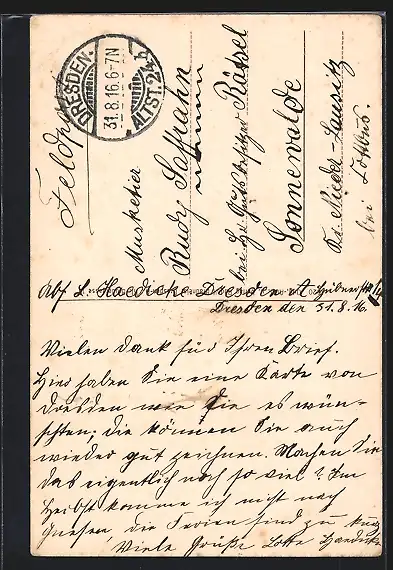 Feldpost
DRESDEN-ALTST. 24
31.8.16. 6-7N
Musketier
Rudy Soffrahn
bei H. Gutsbesitzer Rätsel
Sonnewalde
Kr. Nieder-Lausitz
bei Cottbus.
Abs. L. Haedicke Dresden
Dresden den 31.8.16.
Vielen Dank für Ihren Brief.
Hier haben Sie eine Karte von
Dresden wie Sie es wün-
schten; die können Sie auch
wieder gut zeichnen. Machen Sie
das eigentlich noch so viel? Im
Herbst komme ich nicht nach
Gnesen, die Ferien sind zu kurz
Viele Grüße Lotte Haedicke